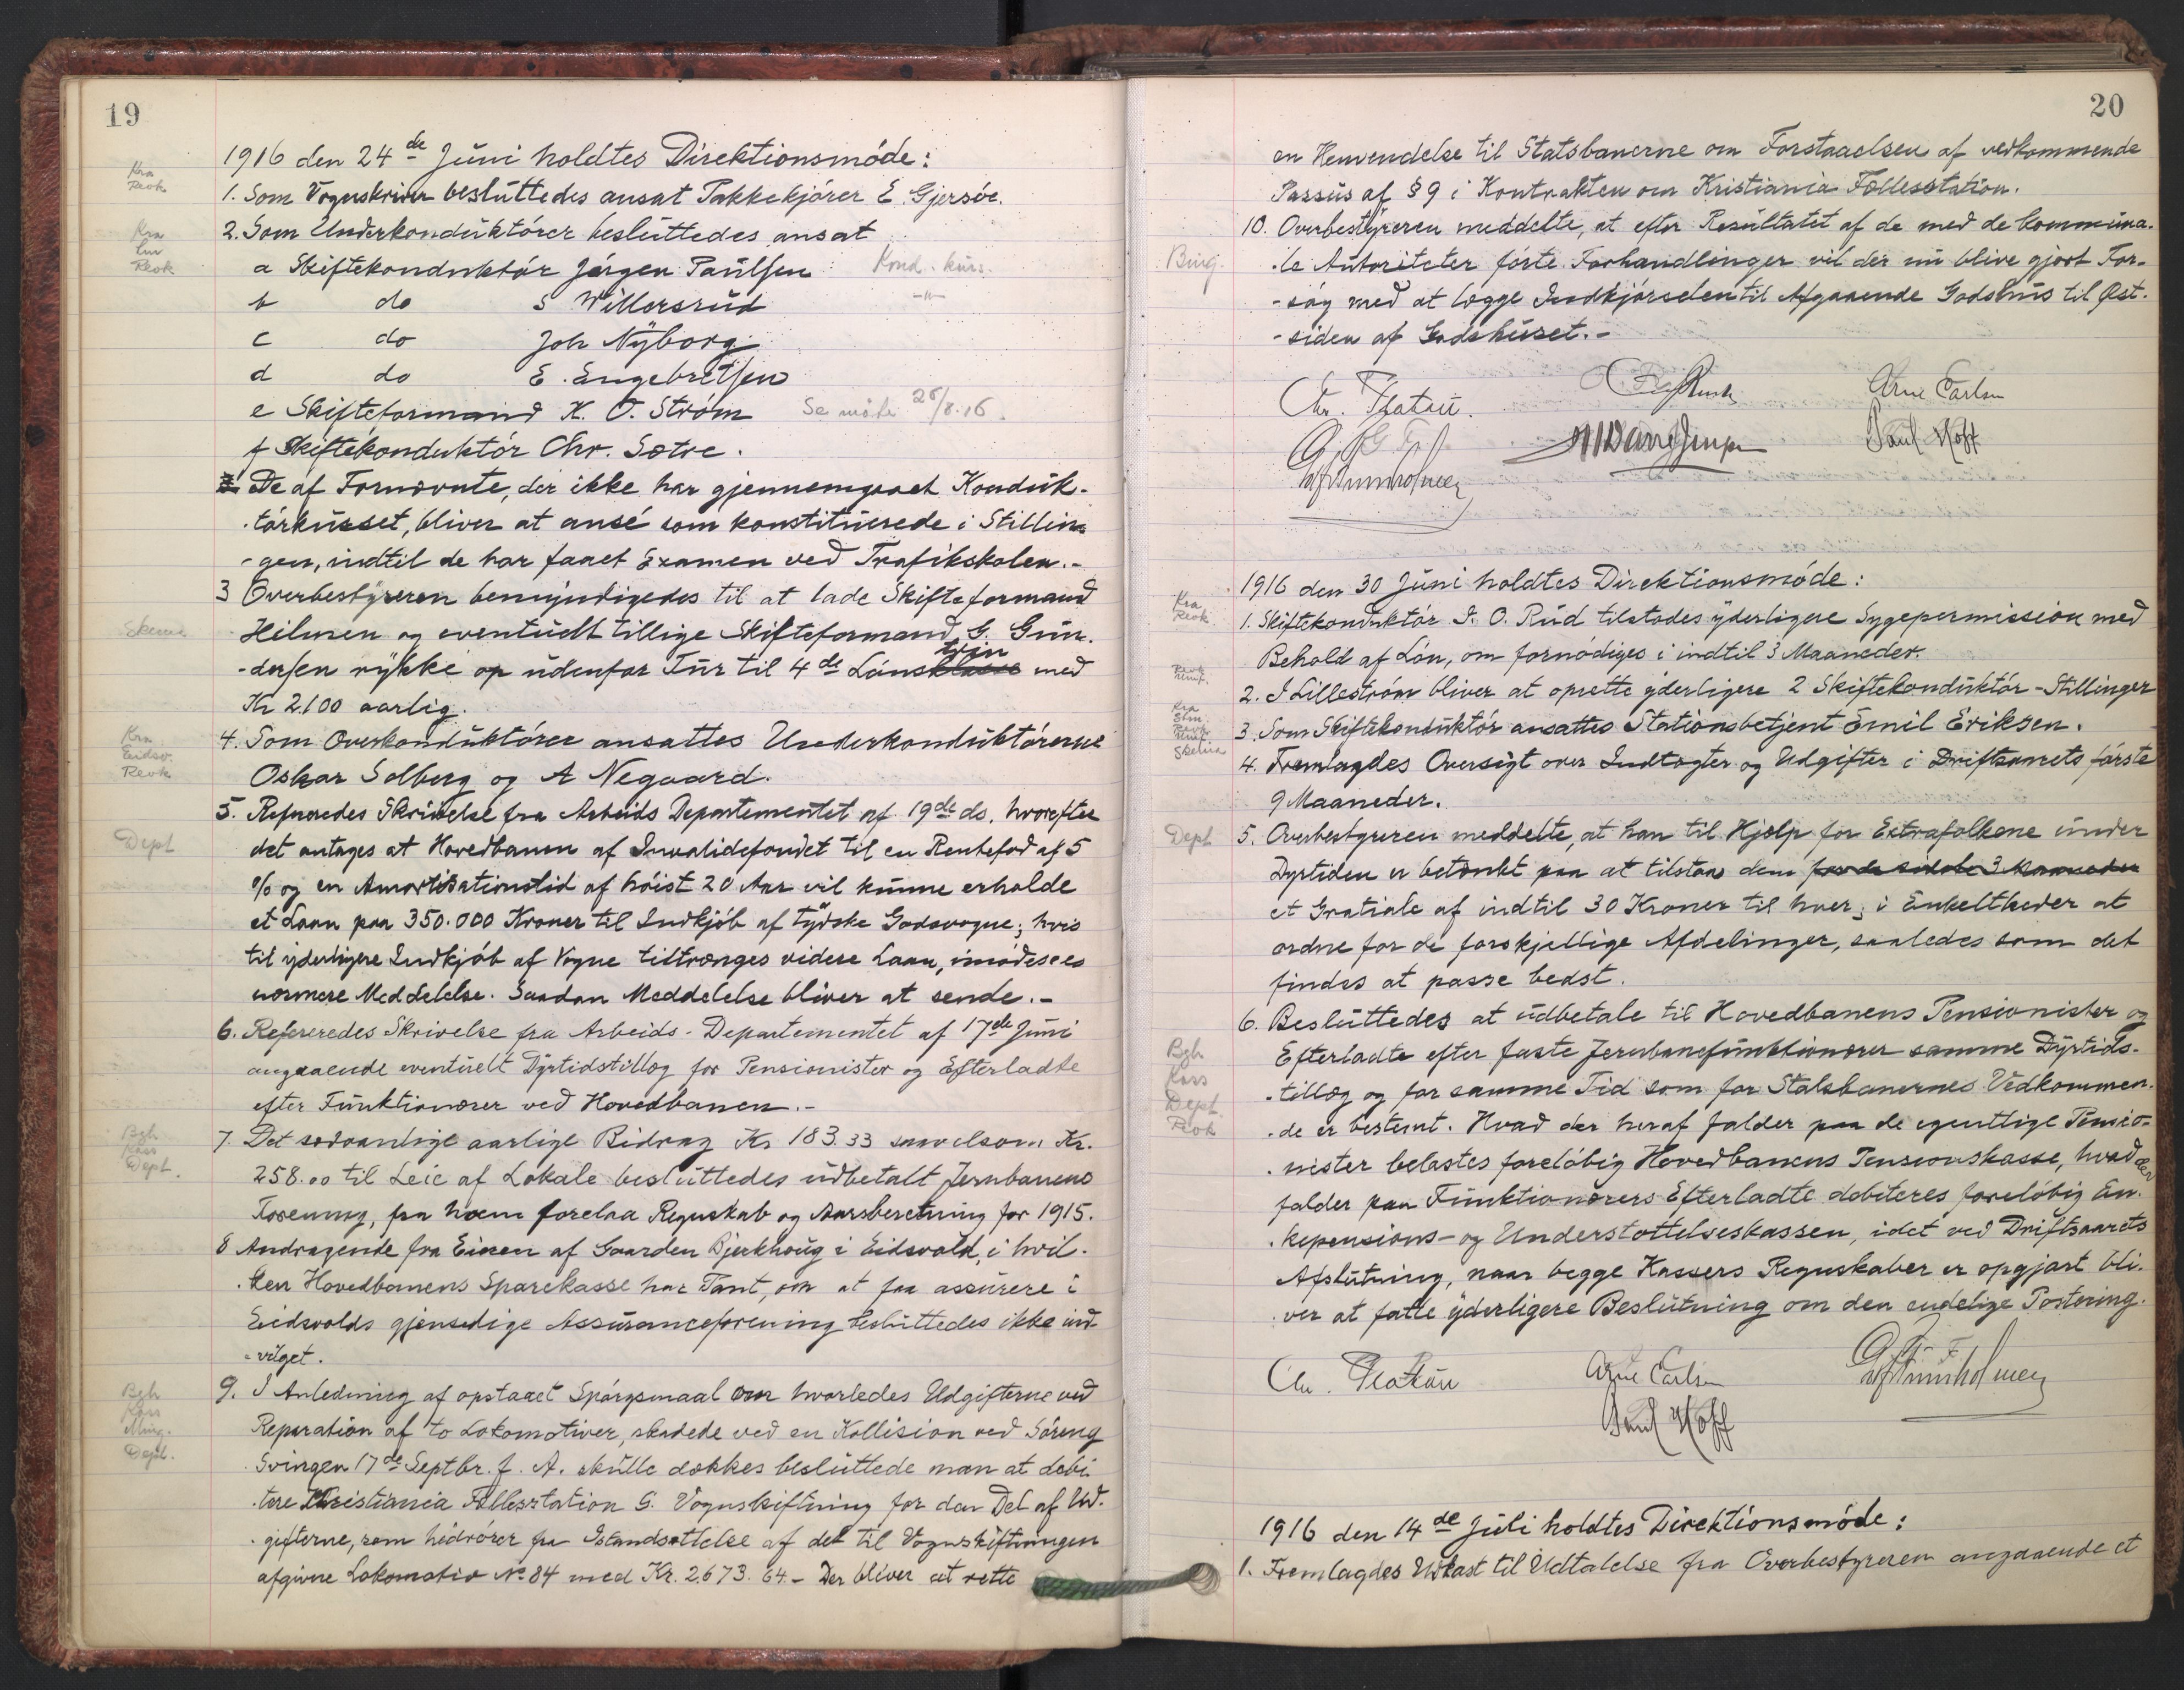 19
1916 den 24de Juni holdtes Direktionsmøde:
Kra
Revk
1. Som Vognskriver besluttedes ansat Pakkekjører E. Gjersøe.
Kra
Revk
2. Som Underkonduktører besluttedes ansat
a Skiftekonduktør Jørgen Paulsen Kond. kurs.
b do S Willersrud -"-
c do Joh Nyborg
d do E. Engebretsen
e Skifteformand K. O. Strøm Se møte 26/8.16.
f Skiftekonduktør Chr. Sætre.
De af Fornævnte, der ikke har gjennemgaaet Konduk-
-tørkurset, bliver at ansé som konstituerede i Stillin-
-gen, indtil de har faaet Examen ved Trafikskolen.-
3 Overbestyreren bemyndigedes til at lade Skifteformand
Hilmen og eventuelt tillige Skifteformand G. Gun-
-dersen rykke op udenfor Tur til 4de Lønsklasse trin med
Kr 2.100 aarlig.
Kra
Eidsv.
Revk
4. Som Overkonduktører ansattes Underkonduktørerne
Oskar Solberg og A Negaard.
5. Refereredes Skrivelse fra Arbeids Departementet af 19de ds, hvorefter
Dept
det antages at Hovedbanen af Invalidefondet til en Rentefod af 5
% og en Amortisationstid af høist 20 Aar vil kunne erholde
et Laan paa 350.000 Kroner til Indkjøb af tydske Godsvogne; hvis
til yderligere Indkjøb af Vogne tiltrænges videre Laan, imødesees
nærmere Meddelelse. Saadan Meddelelse bliver at sende.-
6. Refereredes Skrivelse fra Arbeids-Departementet af 17de Juni
angaaende eventuelt Dyrtidstillæg for Pensionister og Efterladte
efter Funktionærer ved Hovedbanen.-
Bgh
Kass
Dept.
7. Det sædvanlige aarlige Bidrag Kr 183.33 saavelsom Kr.
258.00 til Leie af Lokale besluttedes udbetalt Jernbanens
Forening, fra hvem forelaa Regnskab og Aarsberetning for 1915.
8 Andragende fra Eieren af Gaarden Bjerkhoug i Eidsvold, i hvil-
-ken Hovedbanens Sparekasse har Pant, om at faa assurere i
Eidsvolds gjensidige Assuranceforening besluttedes ikke ind-
-vilget.
Bgh
Kass
Ming.
Dept.
9. I Anledning af opstaaet Spørgsmaal om hvorledes Udgifterne ved
Reparation af to Lokomotiver, skadede ved en Kollision ved Søreng
Svingen 17de Septbr. f. A. skulle dækkes besluttede man at debi-
-tere Kristiania Fællesstation G. Vognskiftning for den Del af Ud-
-gifterne, som hidrører fra Istandsættelse af det til Vognskiftningen
afgivne Lokomotiv No 84 med Kr. 2.673.64.- Der bliver at rette
20
en Henvendelse til Statsbanerne om Forstaaelsen af vedkommende
Passus af § 9 i Kontrakten om Kristiania Fællesstation.
10. Overbestyreren meddelte, at efter Resultatet af de med de kommuna-
Burg.
-le Autoriteter førte Forhandlinger vil der nu blive gjort For-
-søg med at lægge Indkjørselen til Afgaaende Godshus til Øst-
-siden af Godshuset.-
Chr. Platou.
Arne Carlsen
Paul Hoff
1916 den 30 Juni holdtes Direktionsmøde:
Kra
Revk
1. Skiftekonduktør I. O. Rud tilstodes yderligere Sygepermission med
Behold af Løn, om fornødiges i indtil 3 Maaneder.
2. I Lillestrøm bliver at oprette yderligere 2 Skiftekonduktør-Stillinger
3. Som Skiftekonduktør ansattes Stationsbetjent Emil Eriksen.
4. Fremlagdes Oversigt over Indtægter og Udgifter i Driftsaarets første
9 Maaneder.
Dept
5. Overbestyreren meddelte, at han til Hjælp for Extrafolkene under
Dyrtiden er betænkt paa at tilstaa dem for de sidste 3 Maaneder
et Gratiale af indtil 30 Kroner til hver; i Enkeltheder at
ordne for de forskjellige Afdelinger, saaledes som det
findes at passe bedst.
6. Besluttedes at udbetale til Hovedbanens Pensionister og
Bgh
Kass
Dept.
Revk
Efterladte efter faste Jernbanefunktionærer samme Dyrtids-
-tillæg og for samme Tid som for Statsbanernes Vedkommen-
-de er bestemt. Hvad der heraf falder paa de egentlige Pensio-
-nister belastes foreløbig Hovedbanens Pensionskasse, hvad der
falder paa Funktionærers Efterladte debiteres foreløbig En-
-kepensions- og Understøttelseskassen, idet ved Driftsaarets
Afslutning, naar begge Kassers Regnskaber er opgjort bli-
-ver at fatte yderligere Beslutning om den endelige Postering.
Chr. Platou
Arne Carlsen
Paul Hoff
1916 den 14de Juli holdtes Direktionsmøde:
1. Fremlagdes Udkast til Udtalelse fra Overbestyreren angaaende et